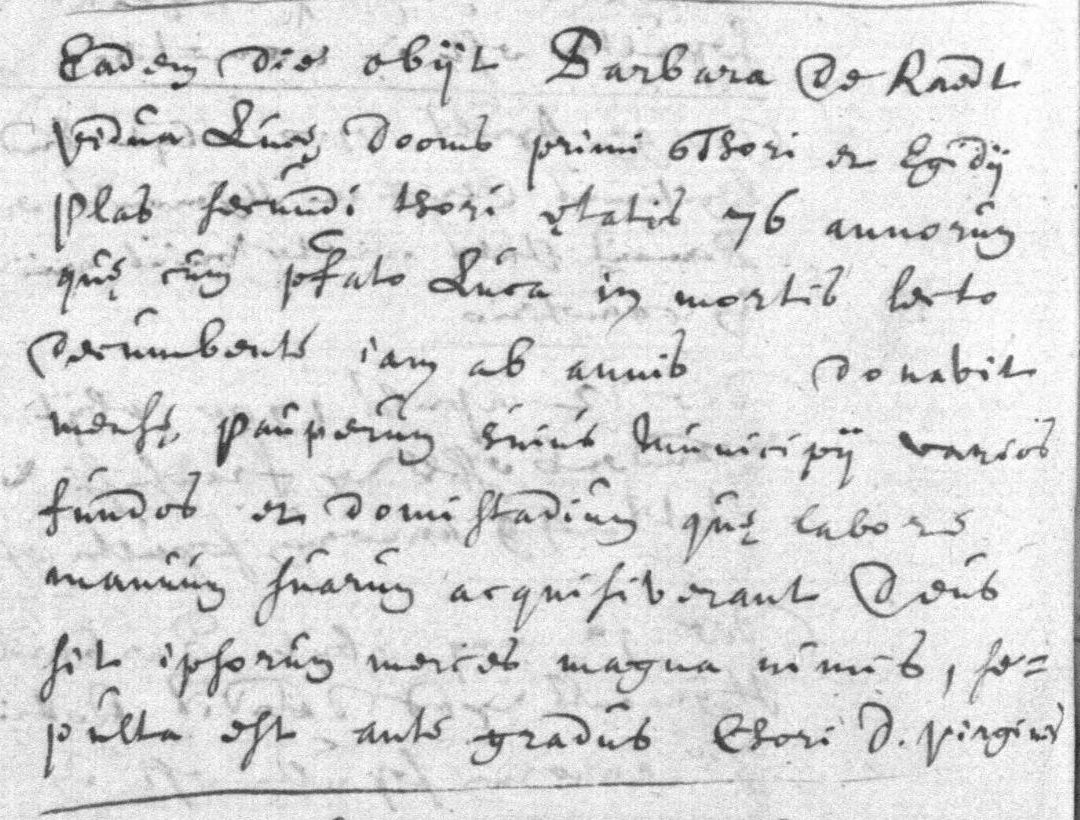 Eadem die obijt Barbara de Raedt
vidua Lucę Dooms primi Thori et Egidij
Plas secundi thori ętatis 76 annorum
quę cum pfato Luca in mortis lecto
decumbente iam ab annis donavit
mensę pauperum huius Municipij varios
fundos et domistadium quę labore
manuum suarum acquisiverant Deus
sit ipsorum merces magna nimis, se=
pulta est ante gradus Chori D. virginis